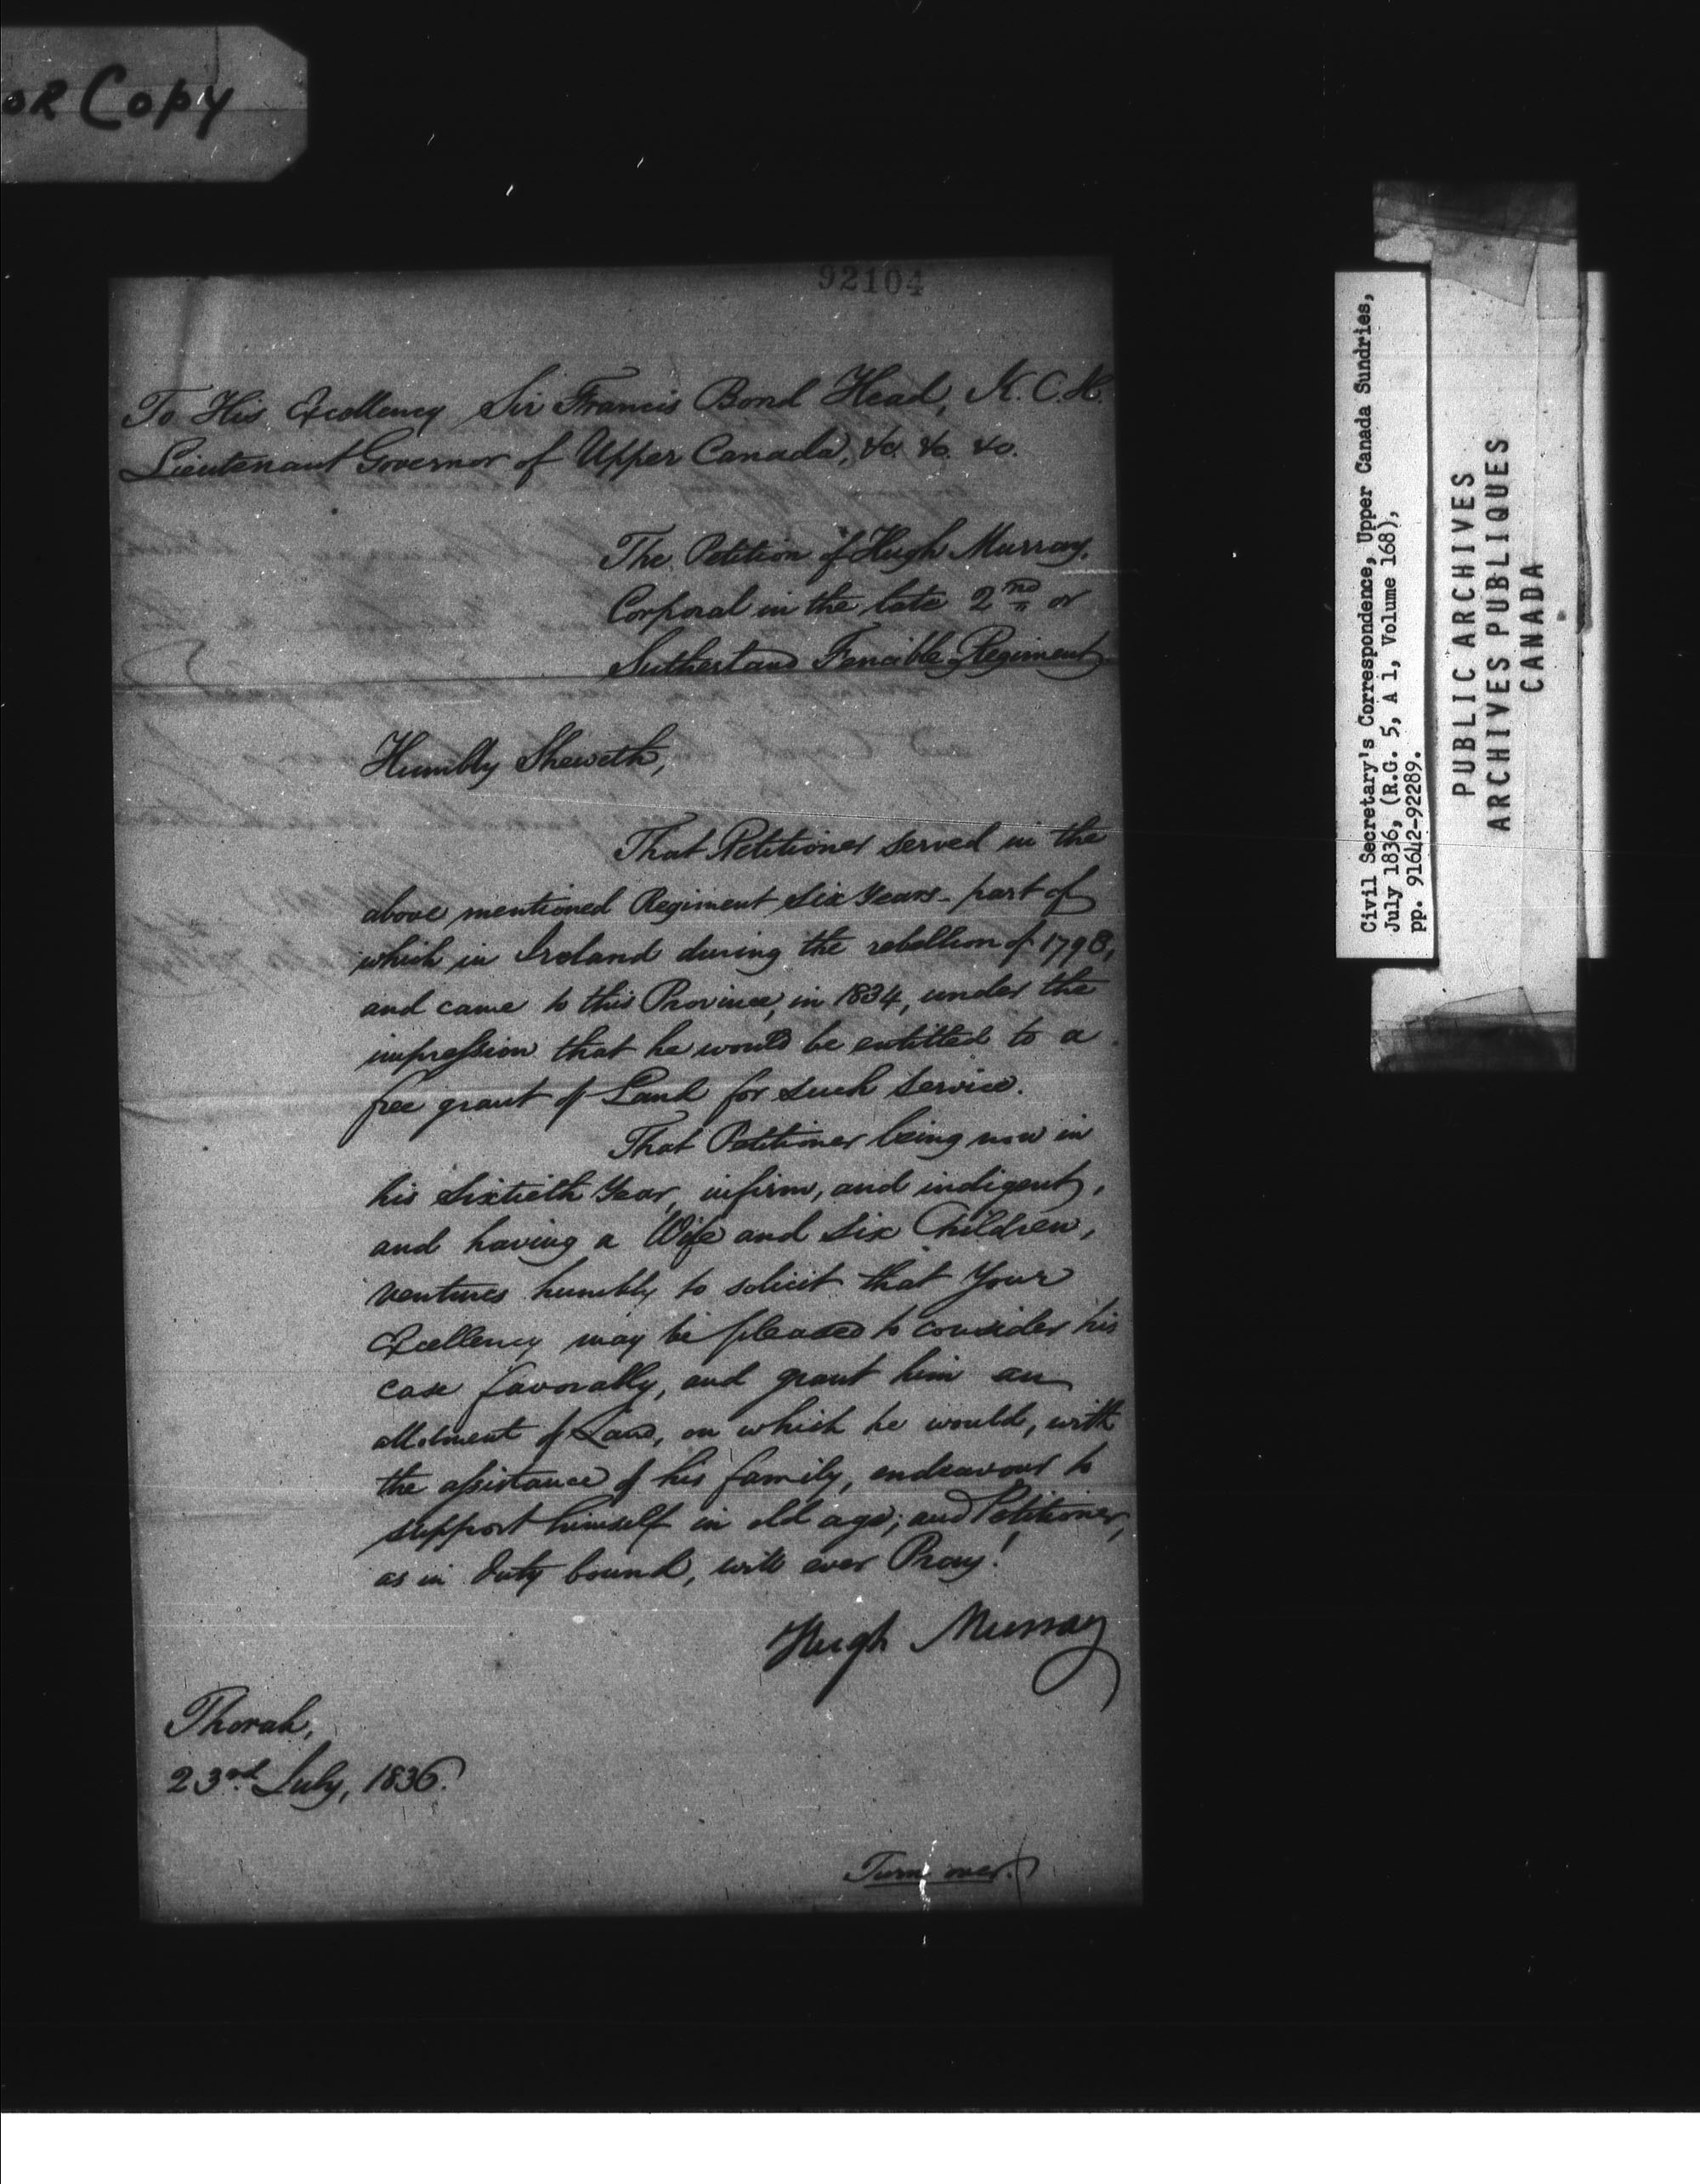 OR Copy
92104
To His Excellency Sir Francis Bond Head, K.C.H.
Lieutenant Governor of Upper Canada, &c. &c. &c.
The Petition of Hugh Murray,
Corporal in the late 2nd or
Sutherland Fencible Regiment
Humbly Sheweth,
That Petitioner served in the
above mentioned Regiment six Years - part of
which in Ireland during the rebellion of 1798,
and came to this Province, in 1834, under the
impression that he would be entitled to a
free grant of Land for such service.
That Petitioner being now in
his sixtieth Year, infirm, and indigent,
and having a Wife and six Children,
ventures humbly to solicit that Your
Excellency may be pleased to consider his
case favorably, and grant him an
allotment of Land, on which he would, with
the assistance of his family, endeavour to
support himself in old age; and Petitioner,
as in duty bound, will ever Pray!
Hugh Murray
Thorah,
23rd July, 1836.
Turn over.
Civil Secretary's Correspondence, Upper Canada Sundries,
July 1836, (R.G. 5, A 1, Volume 168),
pp. 91642-92289.
PUBLIC ARCHIVES
ARCHIVES PUBLIQUES
CANADA